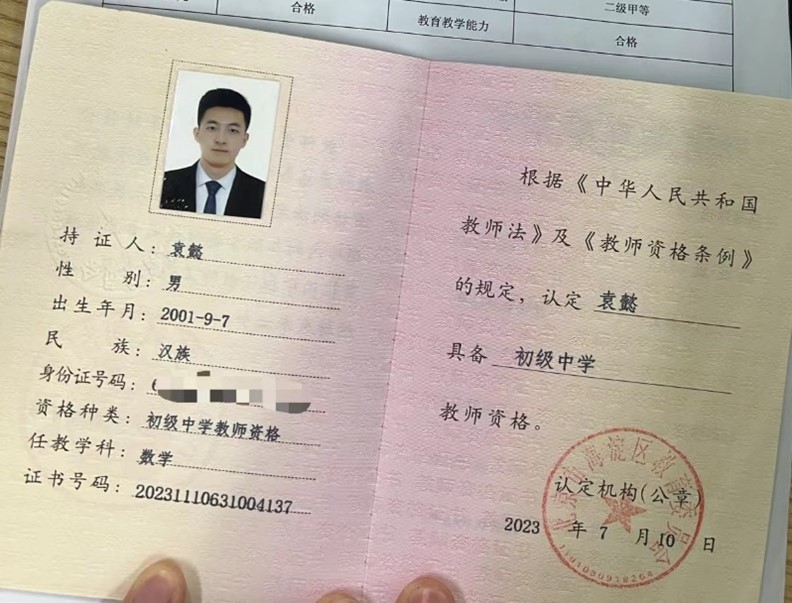 合格
二级甲等
教育教学能力
合格
持证人：袁懿
性别：男
出生年月：2001-9-7
民族：汉族
身份证号码：6
资格种类：初级中学教师资格
任教学科：数学
证书号码：20231110631004137
根据《中华人民共和国
教师法》及《教师资格条例》
的规定，认定 袁懿
具备 初级中学
教师资格。
认定机构(公章)
2023 年 7 月 10 日
北京市海淀区教育委员会